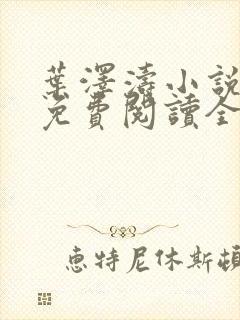 葉澤濤小說
免費閱讀全
惠特尼休斯頓